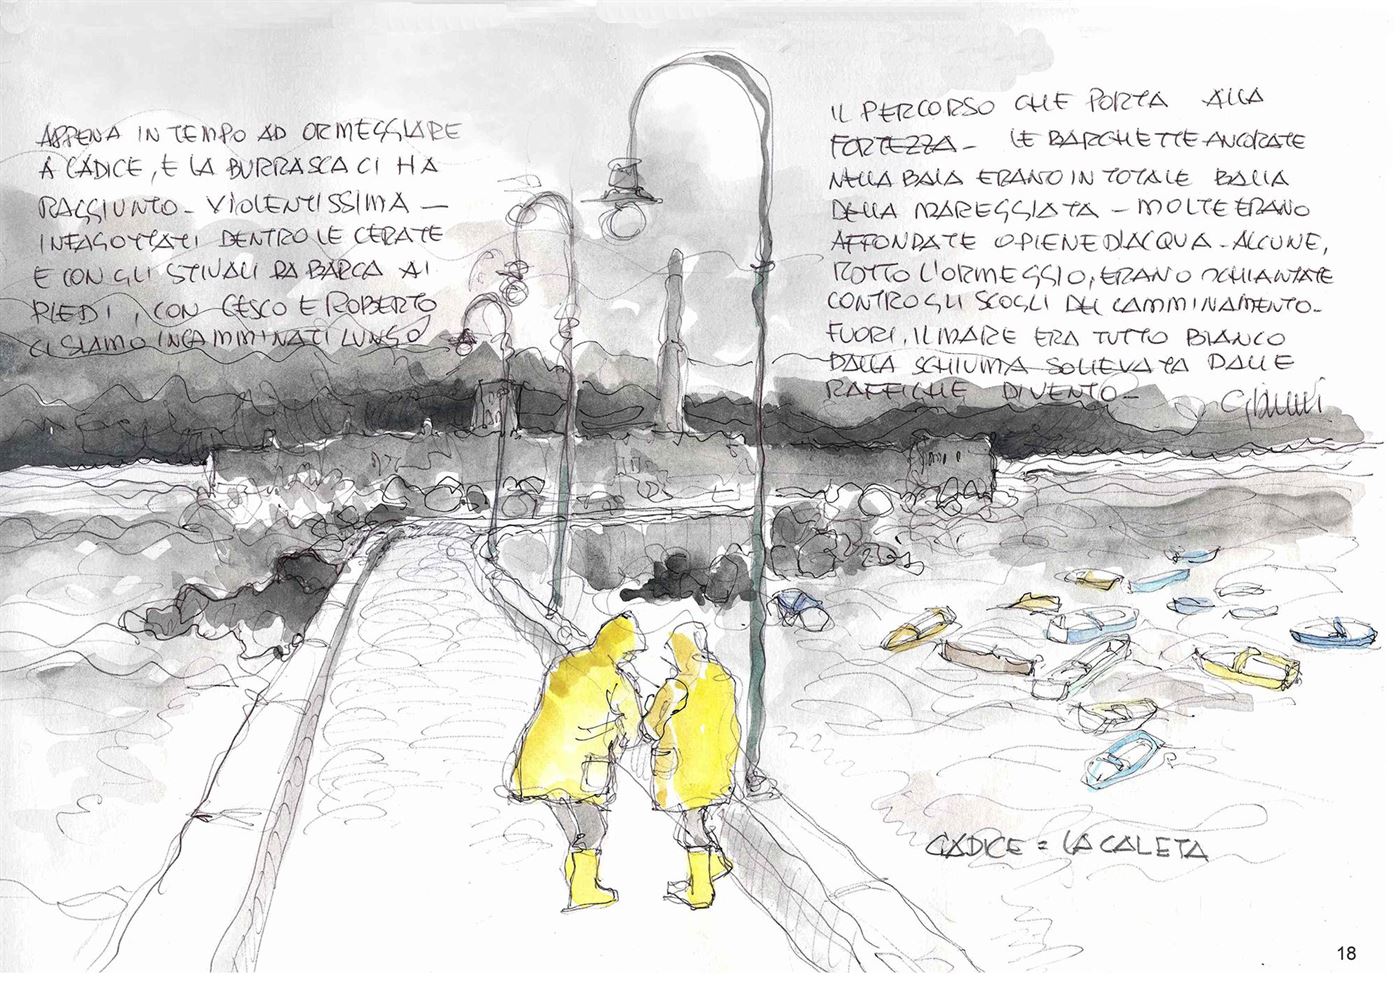 APPENA IN TEMPO AD ORMEGGIARE
A CÁDICE, E LA BURRASCA CI HA
RAGGIUNTO - VIOLENTISSIMA -
INFAGOTTATI DENTRO LE CERATE
E CON GLI STIVALI DA BARCA AI
PIEDI, CON CESCO E ROBERTO
CI SIAMO INCAMMINATI LUNGO
IL PERCORSO CHE PORTA ALLA
FORTEZZA - LE BARCHETTE ANCORATE
NELLA BAIA ERANO IN TOTALE BALIA
DELLA MAREGGIATA - MOLTE ERANO
AFFONDATE O PIENE D'ACQUA - ALCUNE,
ROTTO L'ORMEGGIO, ERANO SCHIANTATE
CONTRO GLI SCOGLI DEL CAMMINAMENTO -
FUORI, IL MARE ERA TUTTO BIANCO
DALLA SCHIUMA SOLLEVATA DALLE
RAFFICHE DI VENTO -
Gianni
CADICE = LA CALETA
18